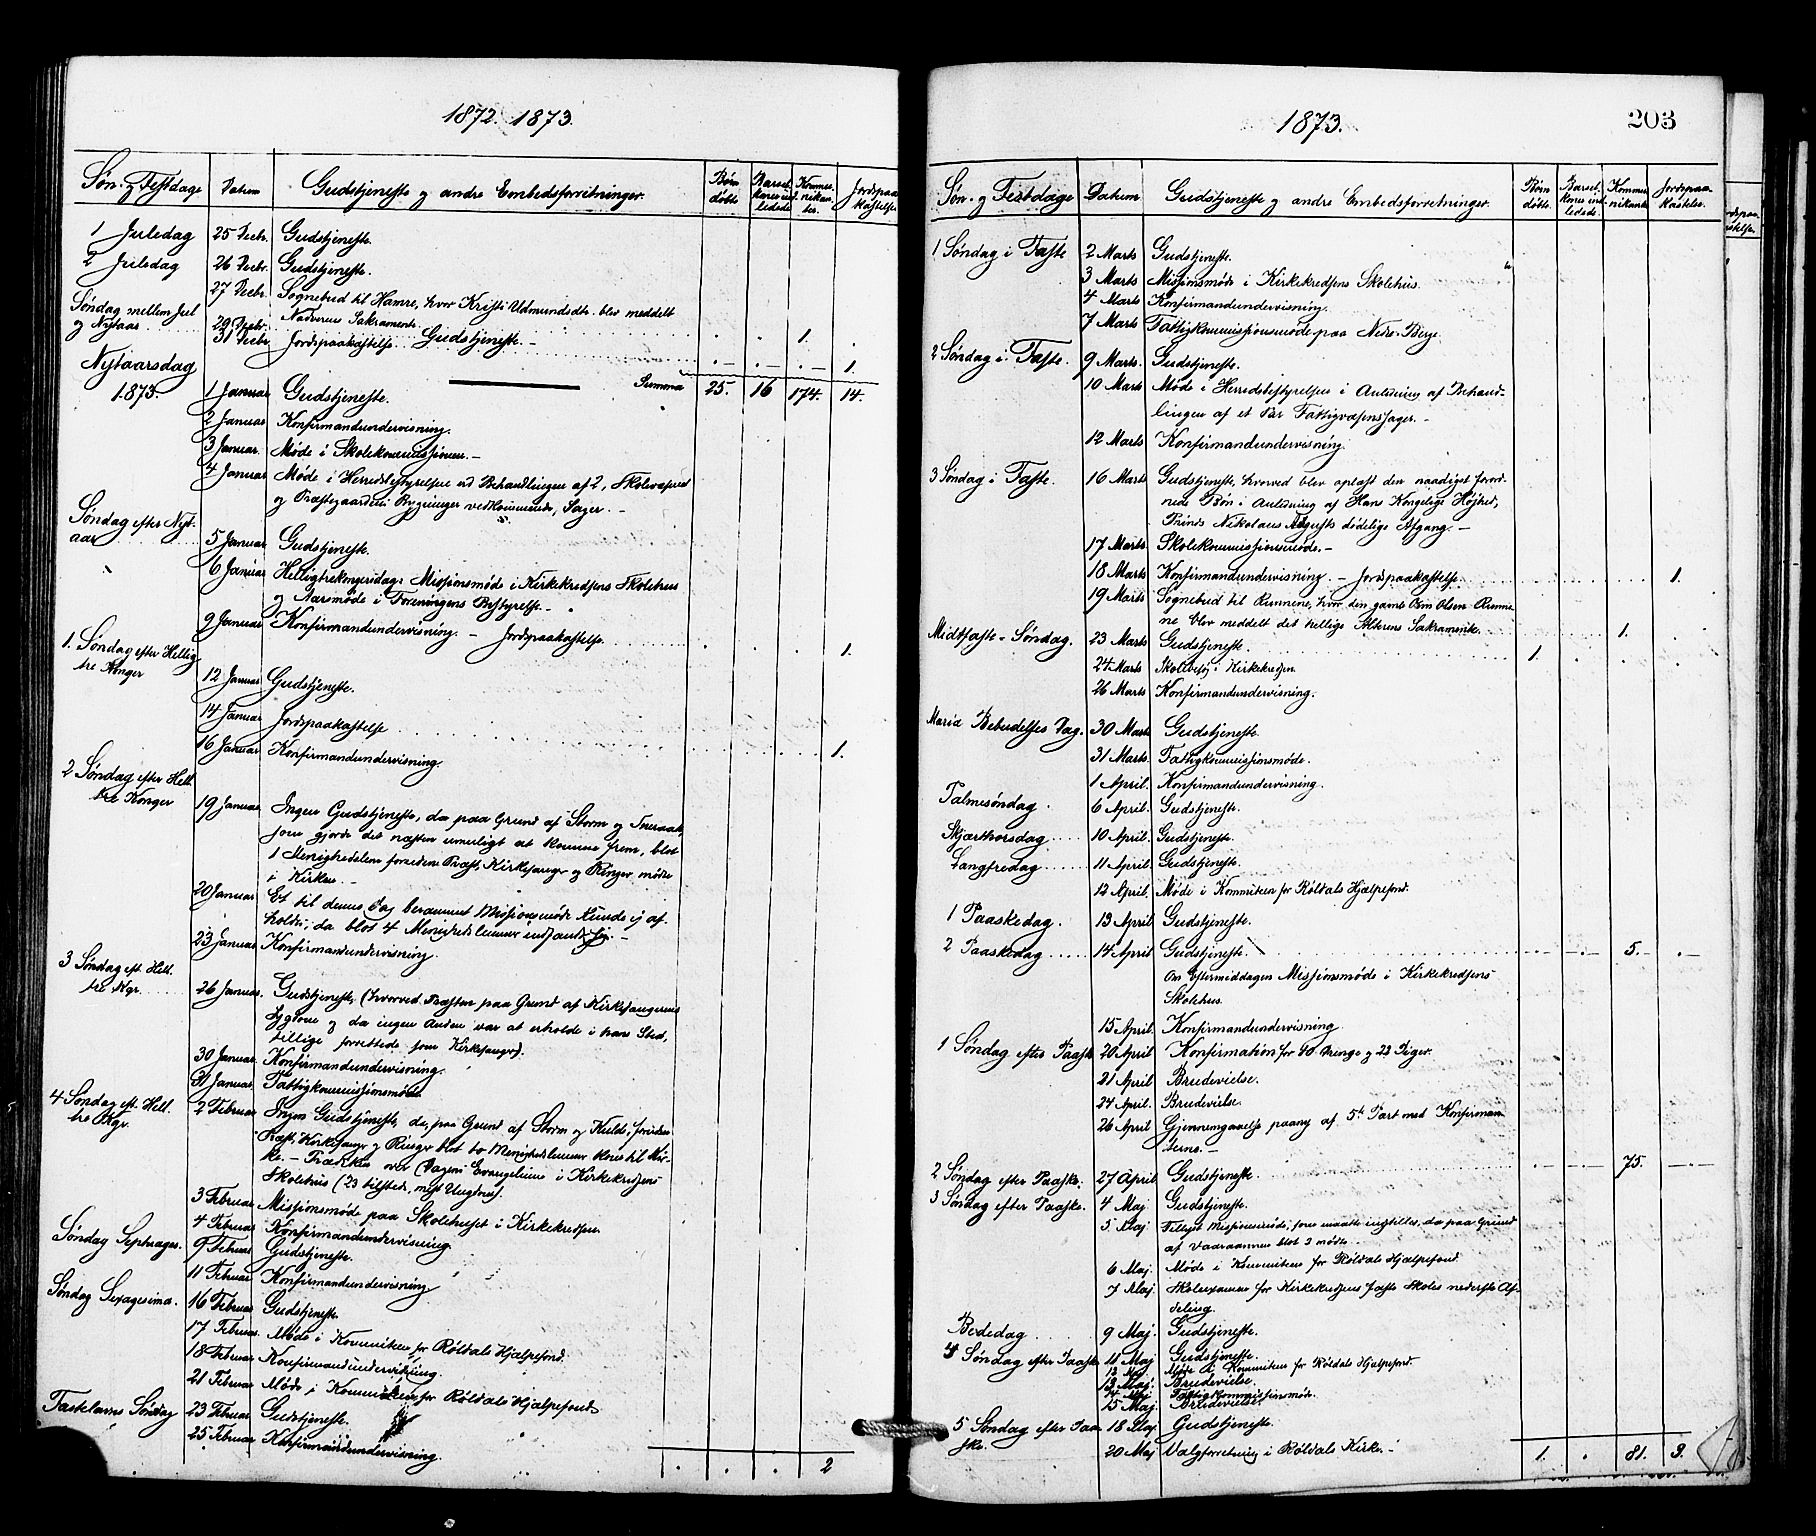 1872. 1873.
Søn- og Festdage Datum Gudstjeneste og andre Embedsforretninger. Børn døbte Barselkoner indledede Kommunikanter. Jordspaakastelse
1 Juledag 25 Decbr. Gudstjeneste.
2 Juledag 26 Decbr. Gudstjeneste.
27 Decbr. Sognebud til Hamre, hvor Kristi Udmundsdtr. blev meddelt
Søndag mellem Jul Nadverens Sakramente.
og Nytaar 29 Decbr. 1.
31 Decbr. Jordspaakastelse. Gudstjeneste. 1.
Nytaarsdag Summa 25. 16 174. 14.
1873. 1 Januar Gudstjeneste.
2 Januar Konfirmandundervisning.
3 Januar. Møde i Skolekommissionen.
4 Januar Møde i Herredsbestyrelsen ved Behandlingen af 2, Skolevæsenet
og Præstegaardens Bygninger vedkommende, Sager.
Søndag efter Nyt-
aar 5 Januar Gudstjeneste.
6 Januar Helligtrekongersdag: Missionsmøde i Kirkekredsens Skolehus
og Aarsmøde i Foreningens Bestyrelse.
9 Januar Konfirmandundervisning. - Jordspaakastelse. 1.
1. Søndag efter Hellig
tre Konger 12 Januar Gudstjeneste.
14 Januar Jordspaakastelse
16 Januar Konfirmandundervisning. 1.
2 Søndag efter Hell.
tre Konger 19 Januar Ingen Gudstjeneste, da paa Grund af Storm og
som gjorde det næsten umuligt at komme frem, blot
1 Menighedslem foruden Præst, Kirkesanger og Ringer mødte
i Kirken.
20 Januar Et til denne Dag berammet Missionsmøde kunde ej af-
holdes, da blot 4 Menighedslemmer indfandt sig.
23 Januar Konfirmandundervisning.
3 Søndag eft. Hell.
tre Kgr. 26 Januar. Gudstjeneste, (hvorved Præsten paa Grund af Kirkesangerens
Sygdom og da ingen Anden var at erholde i hans Sted,
tillige forrettede som Kirkesanger).
30 Januar Konfirmandundervisning.
31 Januar Fattigkommissionsmøde.
4 Søndag eft. Hell.
tre Kgr. 2 Februar Ingen Gudstjeneste, da, paa Grund af Storm og Kulde, foruden
Præst, Kirkesanger og Ringer blot to Menighedslemmer kom til Kir-
ke. - Prædiken over Dagens Evangelium i Kirkekredsens
Skolehus (23 tilstede, mest Ungdom).
3 Februar Missionsmøde paa Skolehuset i Kirkekredsen.
4 Februar Konfirmandundervisning.
Søndag Septuages. 9 Februar Gudstjeneste.
11 Februar Konfirmandundervisning
Søndag Sexagesima. 16 Februar Gudstjeneste.
17 Februar Møde i Komiteen for Røldals Hjælpefond.
18 Februar Konfirmandundervisning.
21 Februar Møde i Komiteen for Røldals Hjælpefond
Fastelavns Søndag 23 Februar Gudstjeneste.
25 Februar Konfirmandundervisning.
2
1873. 203
Søn- og Festdage Datum Gudstjeneste og andre Embedsforretninger. Børn døbte. Barselkoner indledede. Kommunikanter Jordspaakastelse.
1 Søndag i Faste 2 Marts Gudstjeneste.
3 Marts Missionsmøde i Kirkekredsens Skolehus.
4 Marts Konfirmandundervisning.
7 Marts Fattigkommissionsmøde paa Nedre Berge.
2 Søndag i Faste. 9 Marts. Gudstjeneste.
10 Marts Møde i Herredsbestyrelsen i Anledning af Behand-
lingen af et Par Fattigvæsenssager.
12 Marts Konfirmandundervisning
3 Søndag i Faste. 16 Marts Gudstjeneste, hvorved blev oplæst den naadigst forord-
nede Bøn i Anledning af Hans Kongelige Højhed,
Prinds Nikolaus Augusts dødelige Afgang.
17 Marts Skolekommissionsmøde.
18 Marts Konfirmandundervisning. - Jordspaakastelse. 1.
19 Marts Sognebud til Runnene, hvor den gamle Osm Olsen Runne-
ne blev meddelt det hellige Alterens Sakramente. 1.
Midtfaste-Søndag. 23 Marts Gudstjeneste. 1.
24 Marts Skolebesøg i Kirkekredsen.
26 Marts Konfirmandundervisning.
Maria Bebudelses Dag. 30 Marts Gudstjeneste.
31 Marts. Fattigkommissionsmøde.
1 April. Konfirmandundervisning.
Palmesøndag. 6 April. Gudstjeneste.
Skjærthorsdag 10 April. Gudstjeneste.
Langfredag 11 April. Gudstjeneste.
12 April. Møde i Kommiteen for Røldals Hjælpefond.
1 Paaskedag. 13 April Gudstjeneste.
2 Paaskedag 14 April Gudstjeneste. 5.
Om Eftermiddagen Missionsmøde i Kirkekredsens
Skolehus.
15 April. Konfirmandundervisning
1 Søndag efter Paaske 20 April Konfirmation for 10 Drenge og 22 Piger.
21 April Brudevielse.
24 April. Brudevielse.
26 April Gjennemgaaelse paany af 5te Part med Konfirman-
derne. 75.
2 Søndag efter Paaske. 27 April Gudstjeneste
3 Søndag efter Paaske. 4 Maj Gudstjeneste.
5 Maj Missionsmøde, som maatte indstilles, da paa Grund
af Vaaraannen blot 2 mødte.
6 Maj. Møde i Kommiteen for Røldals Hjælpefond.
7 Maj. Skoleexamen for Kirkekredsens faste Skoles nederste Af-
deling.
Bededag 9 Maj. Gudstjeneste.
4 Søndag efter Paaske 11 Maj Gudstjeneste.
12 Maj Møde i Kommiteen for Røldals Hjælpefond.
13 Maj. Brudevielse.
14 Maj Fattigkommissionsmøde.
15 Maj. Brudevielse.
5 Søndag efter Paa- 18 Maj Gudstjeneste.
ske. 20 Maj Valgforretning i Røldals Kirke. 1. 81. 3.